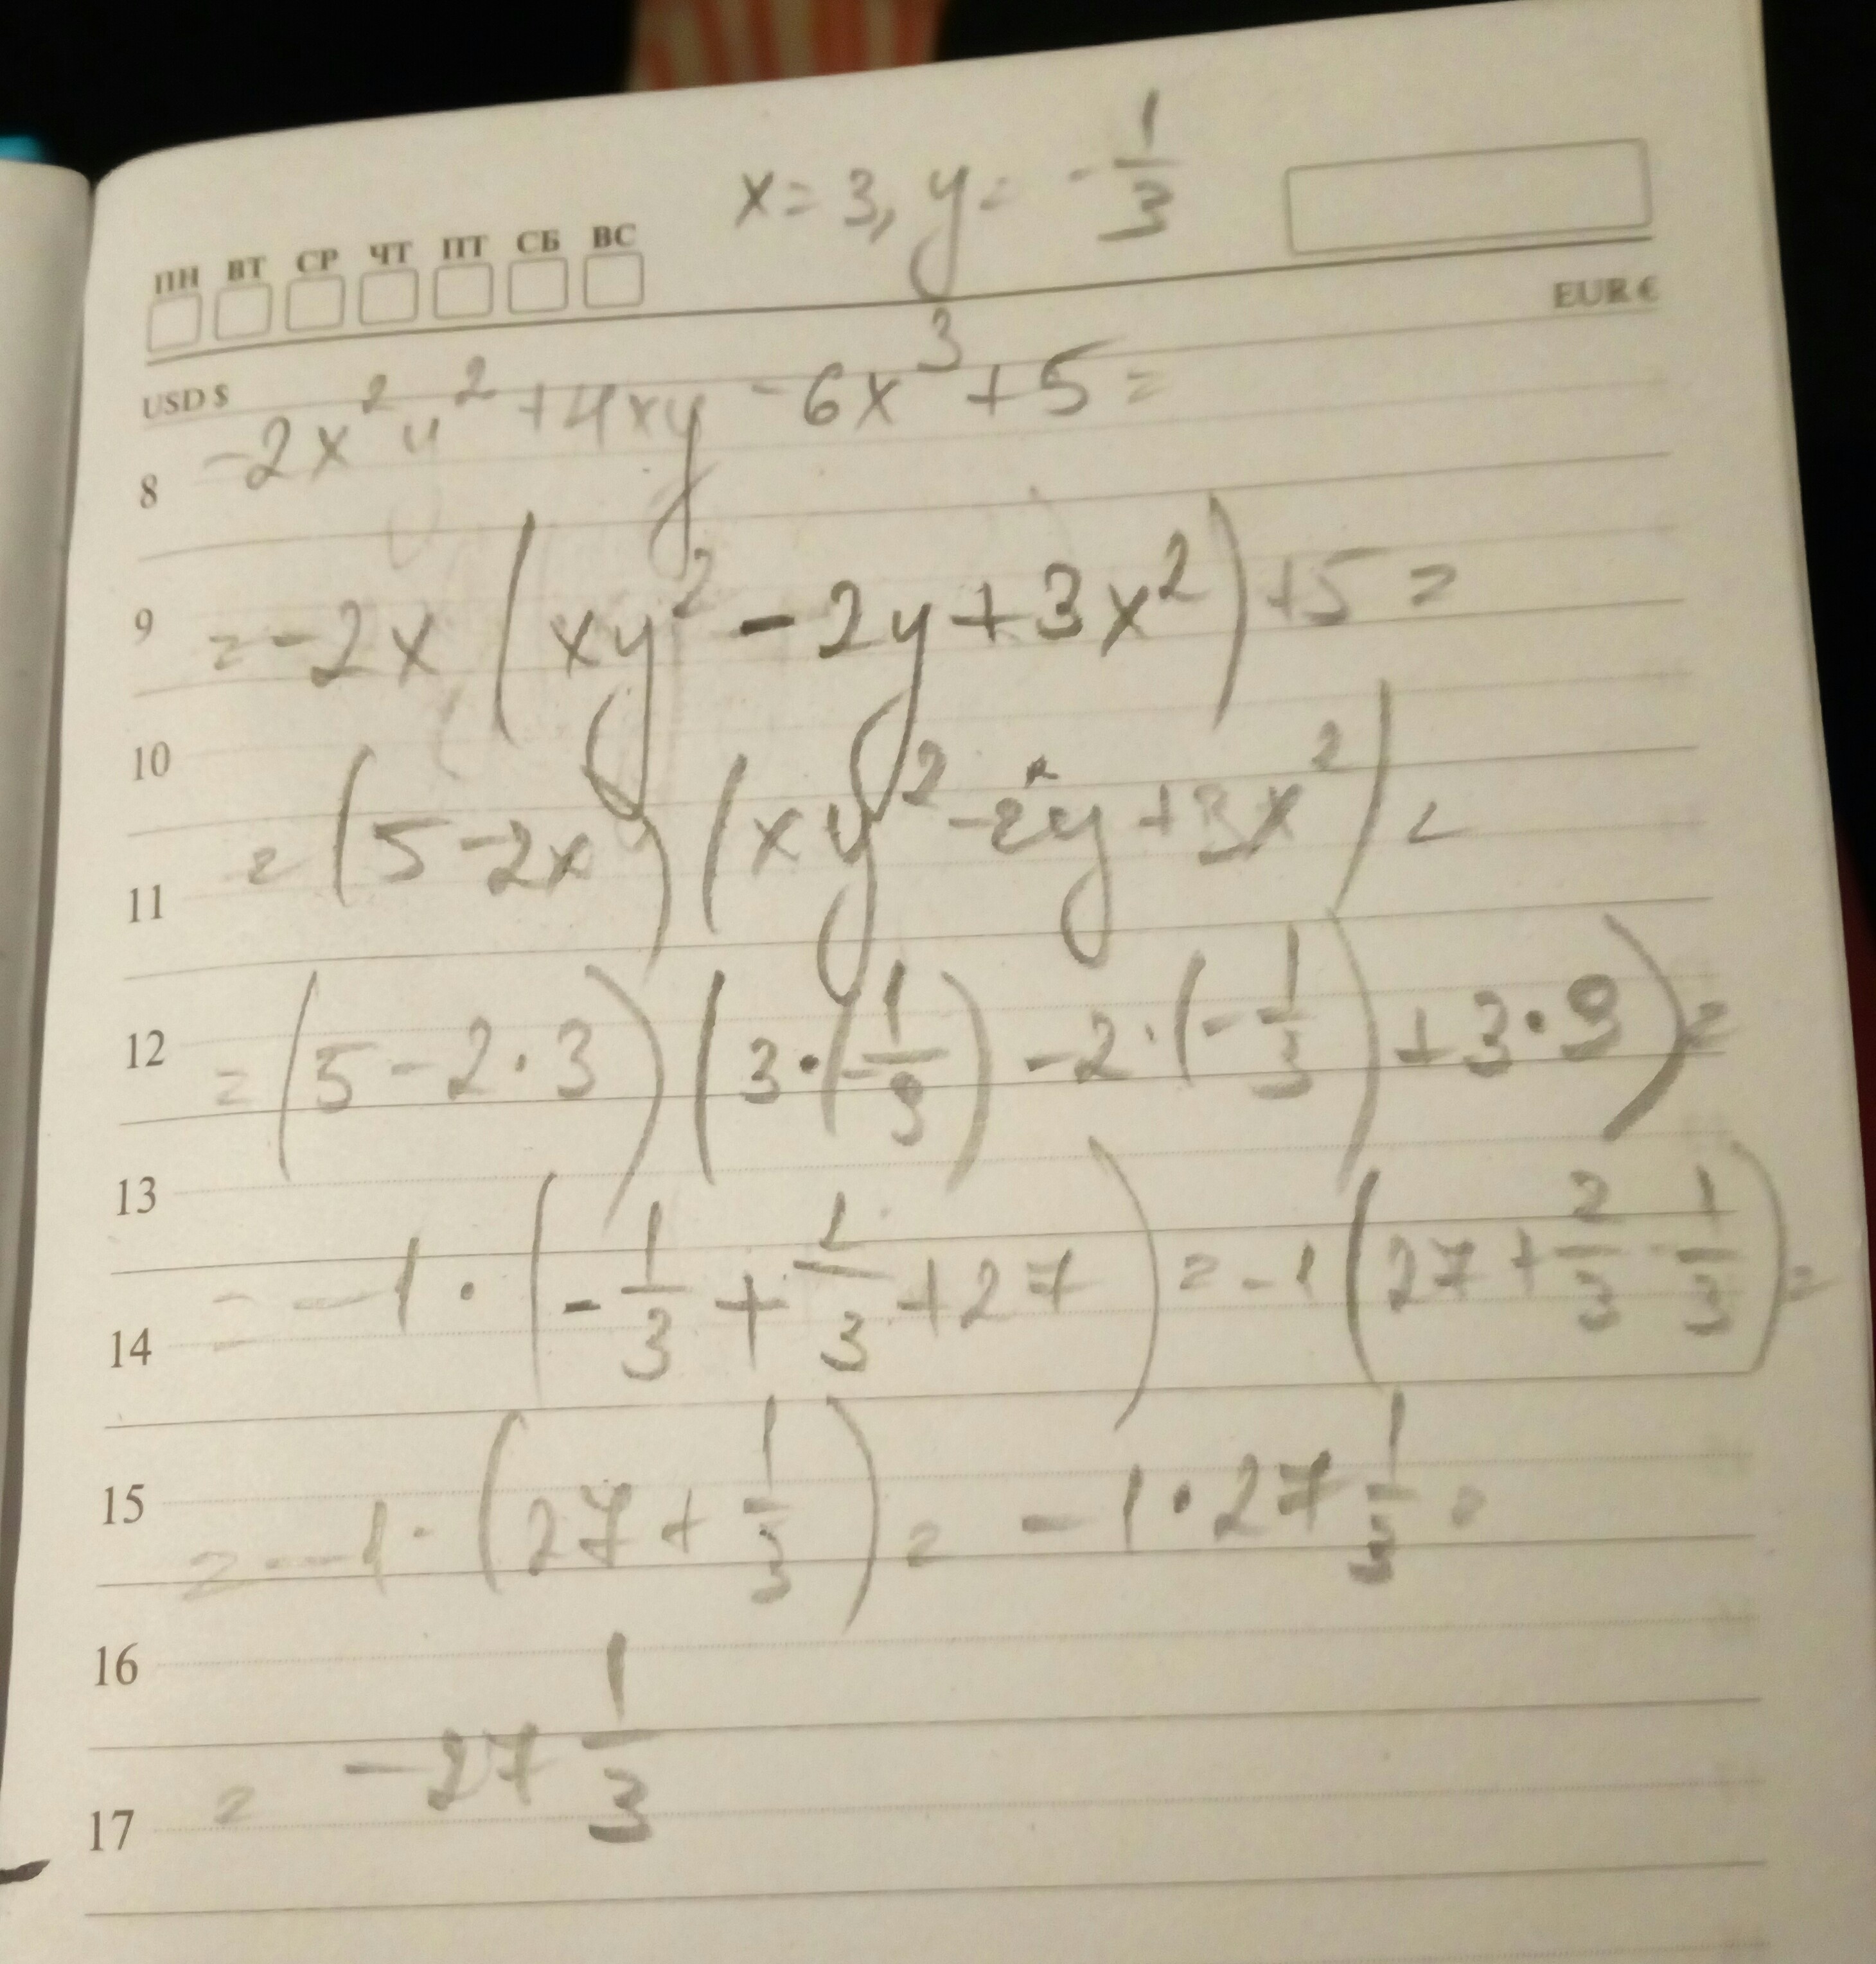 x = 3, y = -1/3
ПН ВТ СР ЧТ ПТ СБ ВС
USD $ EUR €
8 -2x²y² + 4xy - 6x³ + 5 =
9 = -2x (xy² - 2y + 3x²) + 5 =
10
11 = (5 - 2x) (xy² - 2y + 3x²) =
12 = (5 - 2 · 3) (3 · (-1/9) - 2 · (-1/3) + 3 · 9) =
13
14 = -1 · (-1/3 + 2/3 + 27) = -1 (27 + 2/3 - 1/3) =
15 = -1 · (27 + 1/3) = -1 · 27 1/3 =
16
17 = -27 1/3